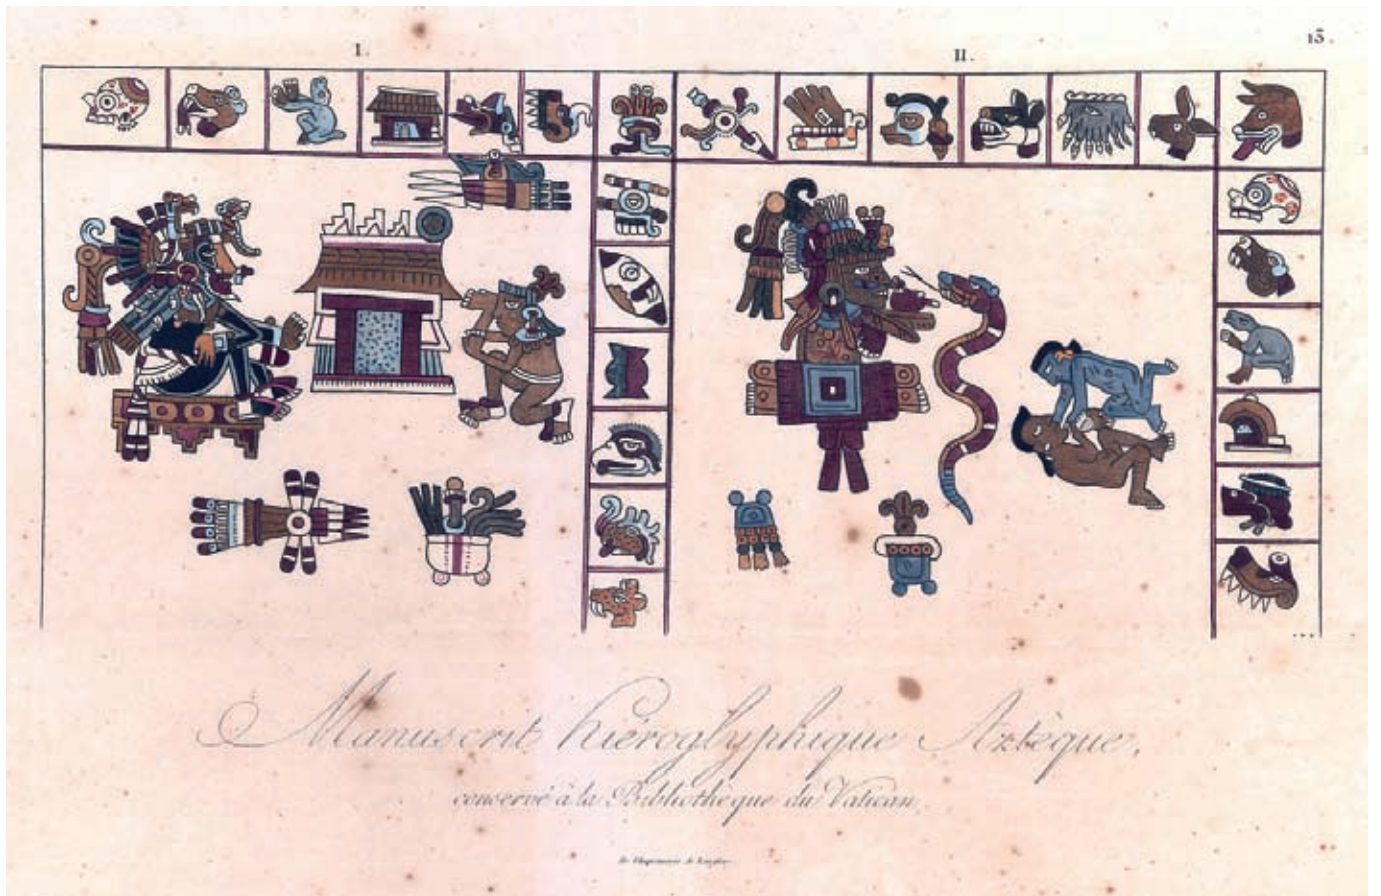 I. II. 13.
Manuscrit hiéroglyphique Aztèque,
conservé à la Bibliothèque du Vatican.
De l'Imprimerie de Langlois